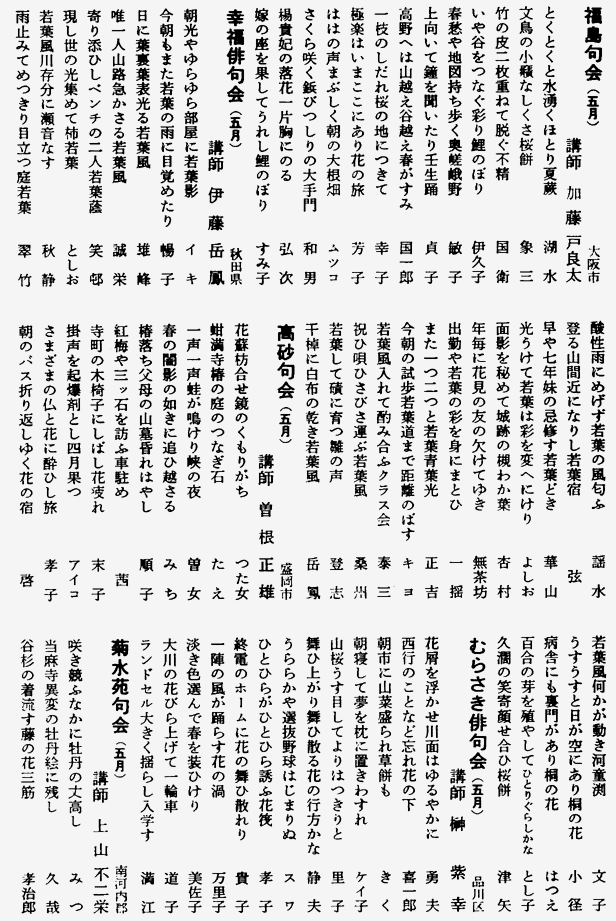 福島句会（五月）
大阪市
講師　加藤戸良太
とくとくと水湧くほとり夏蕨　湖水
文鳥の小騒なしくさ桜餅　象三
竹の皮二枚重ねて脱ぐ不精　国衛
いや谷をつなぐ彩り鯉のぼり　伊久子
春愁や地図持ち歩く奥嵯峨野　敏子
上向いて鐘を聞いたり壬生踊　貞子
高野へは山越え谷越え春がすみ　国一郎
一枝のしだれ桜の地につきて　幸子
極楽はいまここにあり花の旅　芳子
ははの声まぶしく朝の大根畑　ムツコ
さくら咲く鋲びつしりの大手門　和男
楊貴妃の落花一片胸にのる　弘次
嫁の座を果してうれし鯉のぼり　すみ子
幸福俳句会（五月）
秋田県
講師　伊藤岳鳳
朝光やゆらゆら部屋に若葉影　イキ
今朝もまた若葉の雨に目覚めたり　暢子
日に葉裏葉表光る若葉風　雄峰
唯一人山路急かさる若葉風　誠栄
寄り添ひしベンチの二人若葉蔭　笑邨
現し世の光集めて柿若葉　としお
若葉風川存分に瀬音なす　秋静
雨止みてめつきり目立つ庭若葉　翠竹
酸性雨にめげず若葉の風匂ふ　謡水
登る山間近になりし若葉宿　弦
早や七年妹の忌修す若葉どき　華山
光うけて若葉は彩を変へにけり　よしお
面影を秘めて城跡の槻わか葉　杏村
年毎に花見の友の欠けてゆき　無茶坊
出勤や若葉の彩を身にまとひ　一揺
また一つ二つと若葉青葉光　正吉
今朝の試歩若葉道まで距離のばす　キヨ
若葉風入れて酌み合ふクラス会　泰三
祝ひ唄ひさびさ運ぶ若葉風　桑州
若葉して磧に育つ雛の声　登志
干棹に白布の乾き若葉風　岳鳳
高砂句会（五月）
盛岡市
講師　曽根正雄
花蘇枋合せ鏡のくもりがち　つた女
蚶満寺椿の庭のつなぎ石　たえ
一声一声蛙が鳴けり峡の夜　曽女
春の闇影の如きに追ひ越さる　みち
椿落ち父母の山墓昏れはやし　順子
紅梅や三ッ石を訪ふ車駐め　茜
寺町の木椅子にしばし花疲れ　末子
掛声を起爆剤とし四月果つ　アイコ
さまざまの仏と花に酔ひし旅　孝子
朝のバス折り返しゆく花の宿　啓
若葉風何かが動き河童渕　文子
うすうすと日が空にあり桐の花　小径
病舎にも裏門があり桐の花　はつえ
百合の芽を殖やしてひとりぐらしかな　とし子
久濶の笑寄顔せ合ひ桜餅　津矢
むらさき俳句会（五月）
品川区
講師　榊紫幸
花屑を浮かせ川面はゆるやかに　勇夫
西行のことなど忘れ花の下　喜一郎
朝市に山菜盛られ草餅も　きく
朝寝して夢を枕に置きわすれ　ケイ子
山桜うす目してよりはつきりと　里子
舞ひ上がり舞ひ散る花の行方かな　静夫
うららかや選抜野球はじまりぬ　スワ
ひとひらがひとひら誘ふ花筏　孝子
終電のホームに花の舞ひ散れり　貴子
一陣の風が踊らす花の渦　万里子
淡き色選んで春を装ひけり　美佐子
大川の花びら上げて一輪車　道子
ランドセル大きく揺らし入学す　満江
菊水苑句会（五月）
南河内郡
講師　上山不二栄
咲き競ふなかに牡丹の丈高し　みつ
当麻寺異変の牡丹絵に残し　久哉
谷杉の着流す藤の花三筋　孝治郎